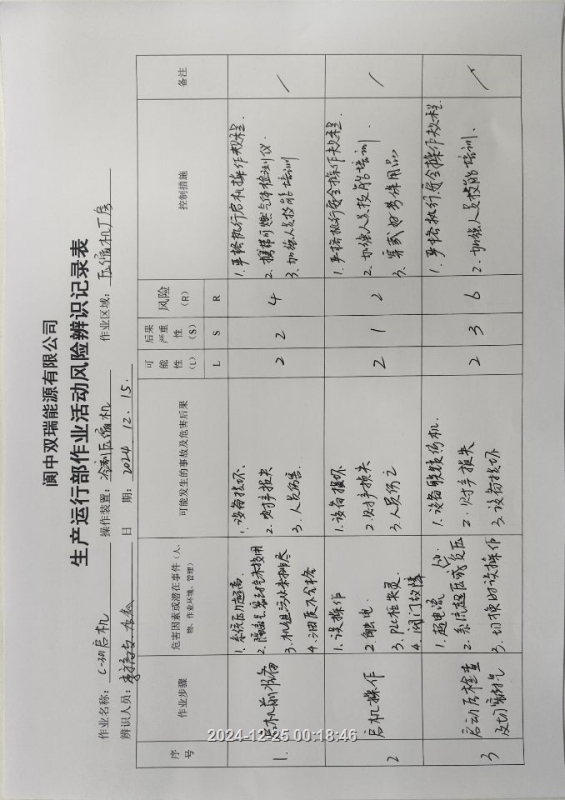 阆中双瑞能源有限公司
生产运行部作业活动风险辨识记录表
作业名称: C-301启机 操作装置: 冷剂压缩机 作业区域: 压缩机厂房
辨识人员: 日 期: 2024.12.15.
序号 作业步骤 危害因素或潜在事件（人、物、作业环境、管理） 可能发生的事故及危害后果 可能性（L） 后果严重性（S） 风险（R） 控制措施 备注
L S R
1. 启机前准备
1. 系统压力超高.
2. 隔离气、密封气未投用
3. 机组污油未排尽
4. 油质不合格
1. 设备损坏.
2. 财产损失
3. 人员伤害.
2 2 4
1. 严格执行启机操作规程.
2. 携带可燃气体检测仪.
3. 加强人员技能培训
/
2 启机操作
1. 误操作
2. 触电.
3. PLC柜失灵.
4. 阀门故障
1. 设备损坏
2. 财产损失
3. 人员伤亡
2 1 2
1. 严格执行安全操作规程.
2. 加强人员技能培训.
3. 穿戴好劳保用品
/
3 启动后检查及切密封气
1. 超电流
2. 系统超压或负压
3. 切换时误操作
1. 设备联锁停机.
2. 财产损失
3. 设备损坏
2 3 6
1. 严格执行安全操作规程.
2. 加强人员技能培训.
/
2024-12-25 00:18:46